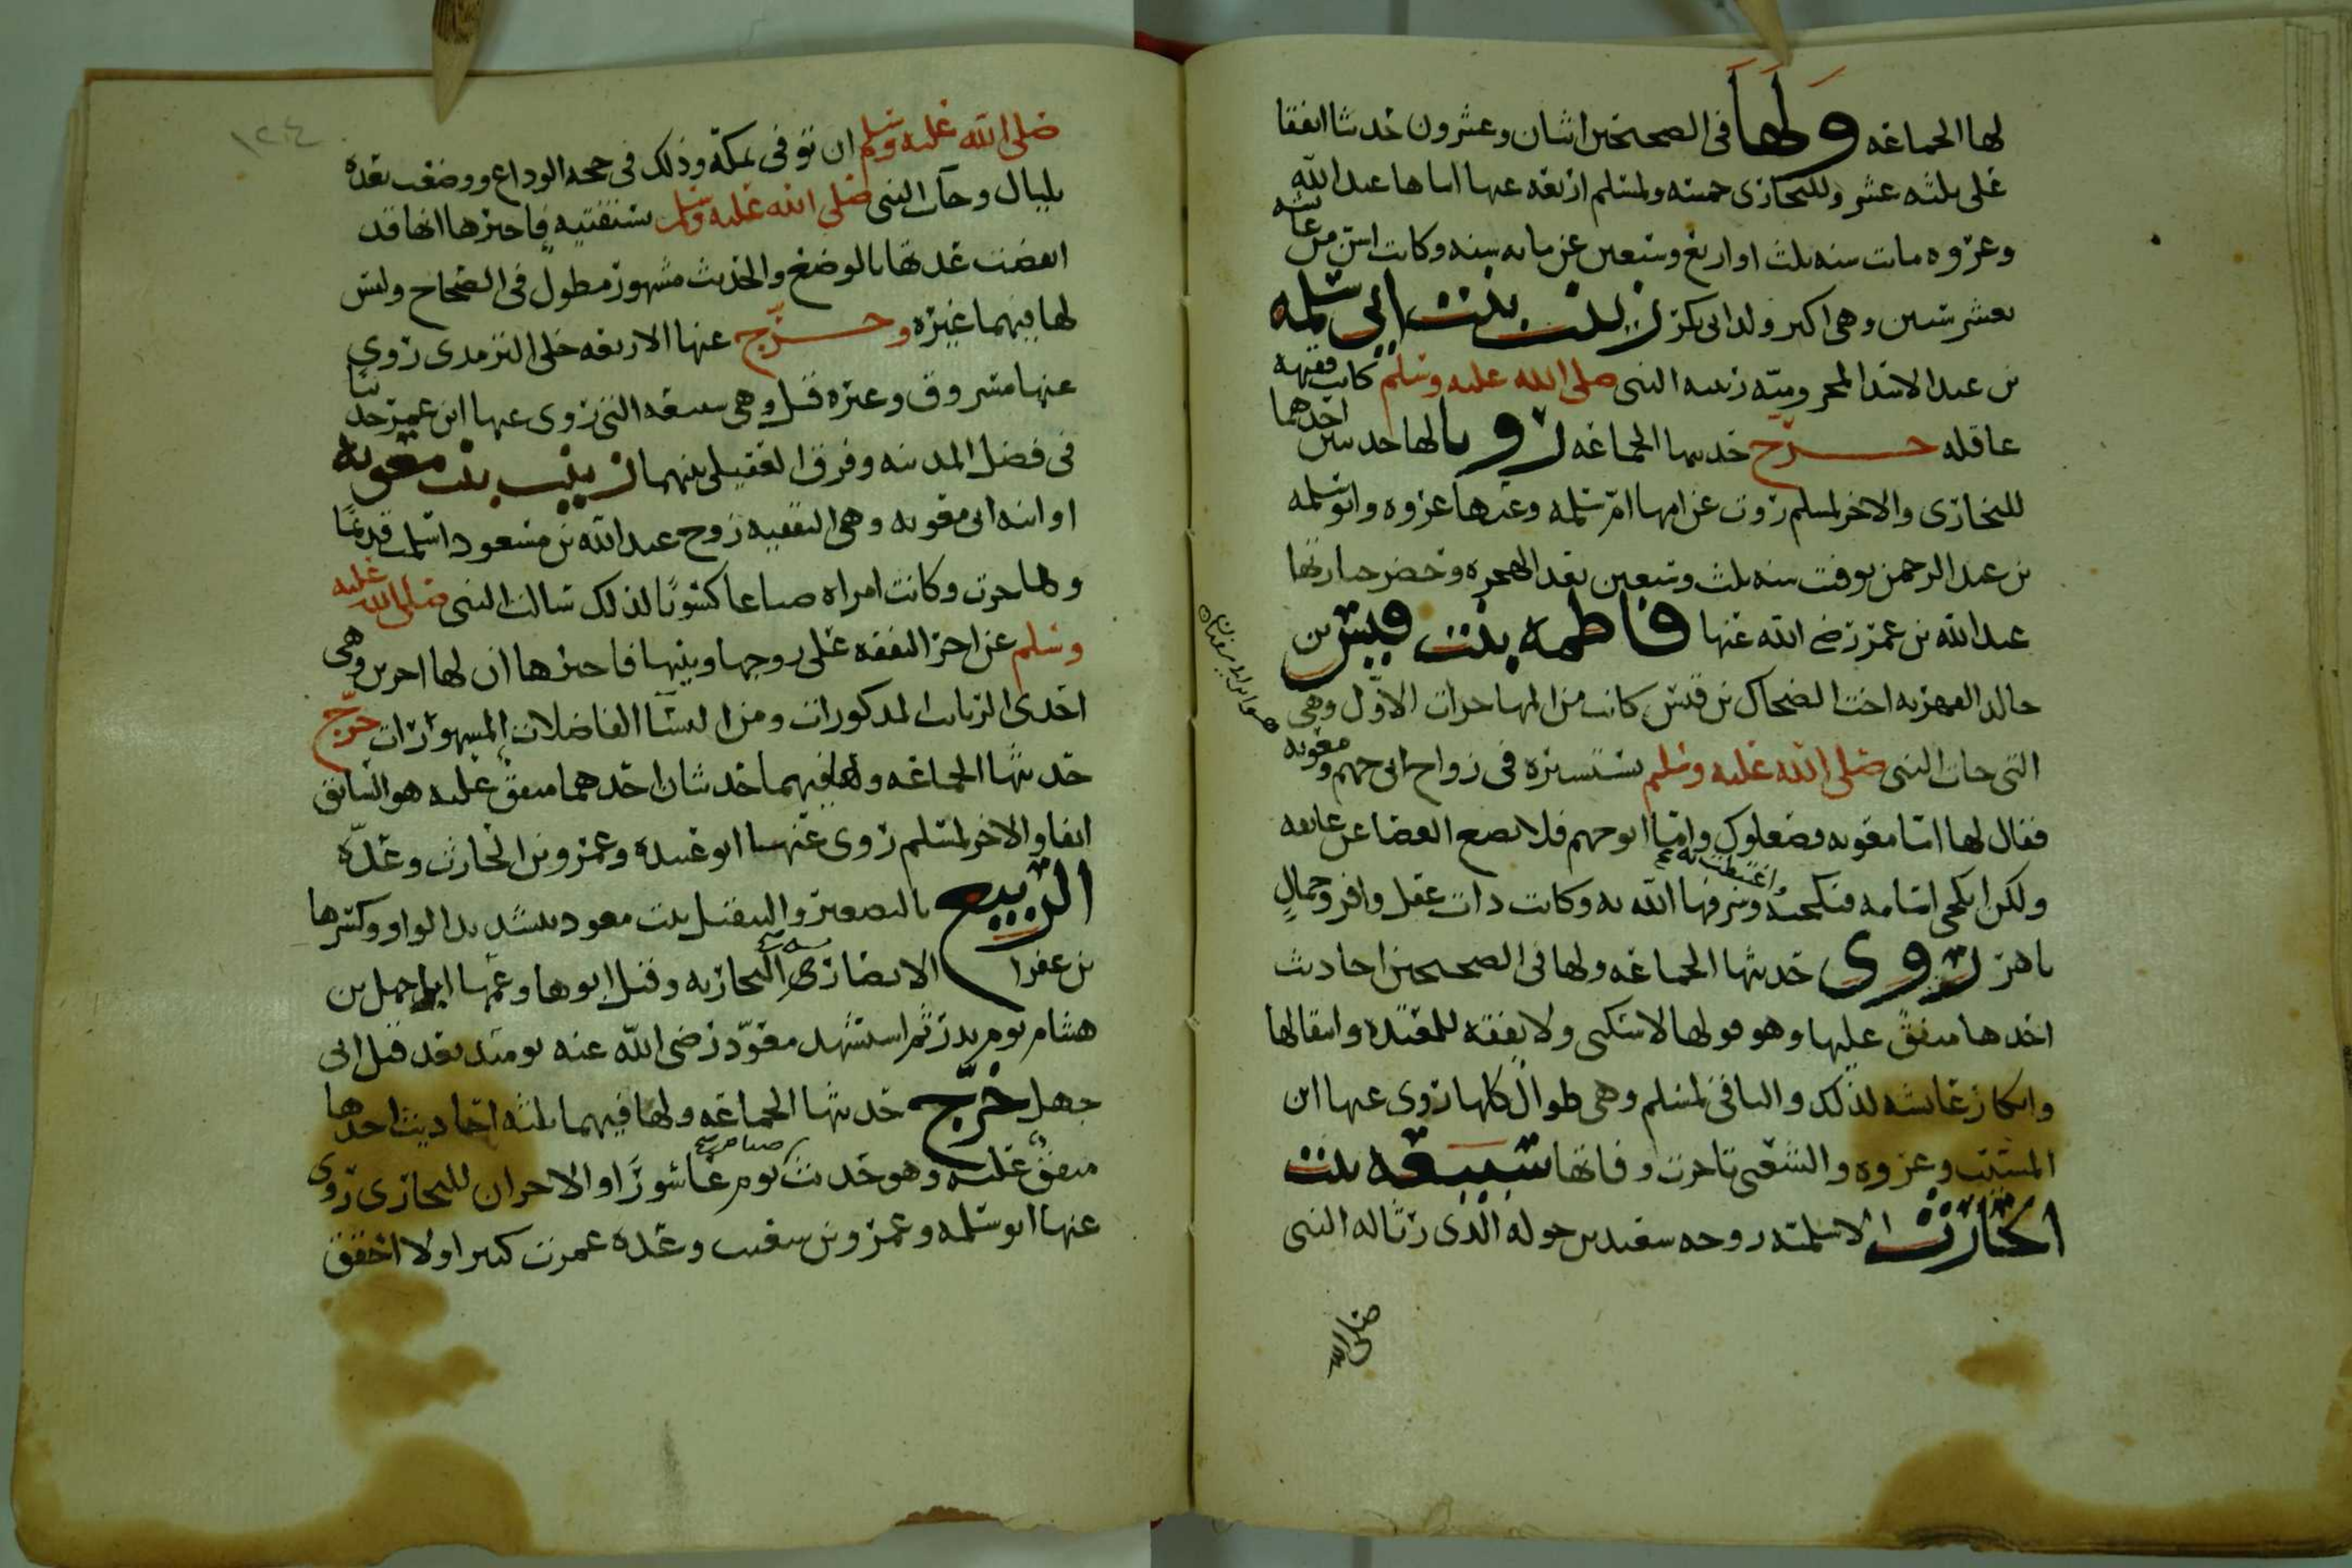 لها الجماعه ولها فى الصحيحين اثنان وعشرون حديثا اتفقا
على ثلثه عشر وللبخارى خمسه ولمسلم اربعه عنها ابناها عبدالله
وعروه ماتت سنه ثلث او اربع وسبعين عن مايه سنه وكانت اسن من عايشه
بعشر سنين وهى اكبر ولد ابى بكر زينب بنت ابى سلمه
بن عبد الاسد المخزوميه ربيبه النبى صلى الله عليه وسلم كانت فقيهه
عاقله خرج حديثها الجماعه رويا لها حديثين احدهما
للبخارى والاخر لمسلم روت عن امها ام سلمه وعنها عروه وابو سلمه
بن عبد الرحمن توفت سنه ثلث وسبعين بعد الهجره وحضر جنازتها
عبد الله بن عمر رضى الله عنها فاطمه بنت قيس بن
خالد الفهريه اخت الضحاك بن قيس كانت من المهاجرات الاول وهى
التى جات النبى صلى الله عليه وسلم تستشيره فى زواج ابى جهم ومعويه
فقال لها اما معويه فصعلوك واما ابو جهم فلا يضع العصا عن عاتقه
ولكن انكحى اسامه فنكحته وشرفها الله به وكانت ذات عقل وافر وجمال
واغتبطت به
باهر روى حديثها الجماعه ولها فى الصحيحين احاديث
احدها متفق عليها وهو قولها لا سكنى ولا نفقه للمعتده وانتقالها
وانكار عايشه لذلك والباقى لمسلم وهى طوال كلها روى عنها ابن
المسيب وعروه والشعبى تاخرت وفاتها سبيعه بنت
الحارث الاسلميه زوجه سعد بن خوله الذى رثا له النبى
صلى الله
صلى الله عليه وسلم ان توفى بمكه وذلك فى حجه الوداع ووضعت بعده
بليال وجات النبى صلى الله عليه وسلم تستفتيه فاخبرها انها قد
انقضت عدتها بالوضع والحديث مشهور مطول فى الصحاح وليس
لها فيهما غيره وخرج عنها الاربعه خلى الترمدى روى
عنها مسروق وغيره قيل وهى سبيعه التى روى عنها ابن عمر حديثا
فى فضل المدينه وفرق العقيلى بينهما زينب بنت معويه
او ابنه ابى معويه وهى الثقفيه زوج عبد الله بن مسعود اسلمت قديما
وهاجرت وكانت امراه صناعا كسوبا لذلك سالت النبى صلى الله عليه
وسلم عن اجر النفقه على زوجها وبنيها فاخبرها ان لها اجرين وهى
احدى الزيانب المذكورات ومن النسآ الفاضلات المشهورات خرج
حديثها الجماعه ولها فيهما حديثان احدهما متفق عليه هو السابق
انفا والاخر لمسلم روى عنها ابو عبيده وعمرو بن الحارث وعده
الربيع بالتصغير والتثقيل بنت معوذ بتشديد الواو وكسرها
بن عفرا الانصارى النجاريه وقتل ابوها وعمها ابا جهل بن
هشام يوم بدر ثم استشهد معوذ رضى الله عنه يومئذ بعد قتل ابى
جهل خرج حديثها الجماعه ولها فيهما ثلثه احاديث احدها
متفق عليه وهو حديث يوم عاشورا والاخران للبخارى روى
صيام
عنها ابو سلمه وعمرو بن شعيب وعده عمرت كثيرا ولا احقق